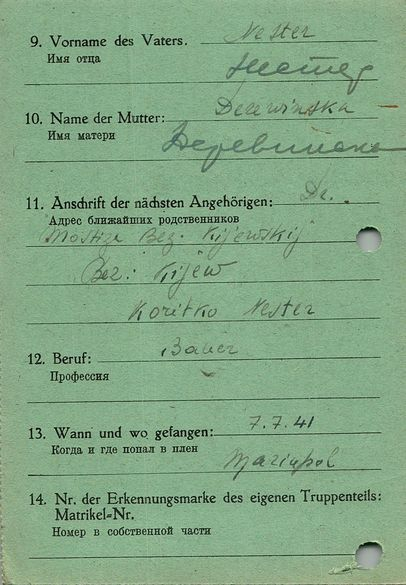 9. Vorname des Vaters. Nester
Имя отца Нестер
10. Name der Mutter: Derewinska
Имя матери Деревинска
11. Anschrift der nächsten Angehörigen: Dr.
Адрес ближайших родственников
Mostiza Bez. Kijewskij
Bez: Kijew
Koritko Nester
12. Beruf: Bauer
Профессия
13. Wann und wo gefangen: 7.7.41
Когда и где попал в плен
Mariupol
14. Nr. der Erkennungsmarke des eigenen Truppenteils:
Matrikel=Nr.
Номер в собственной части